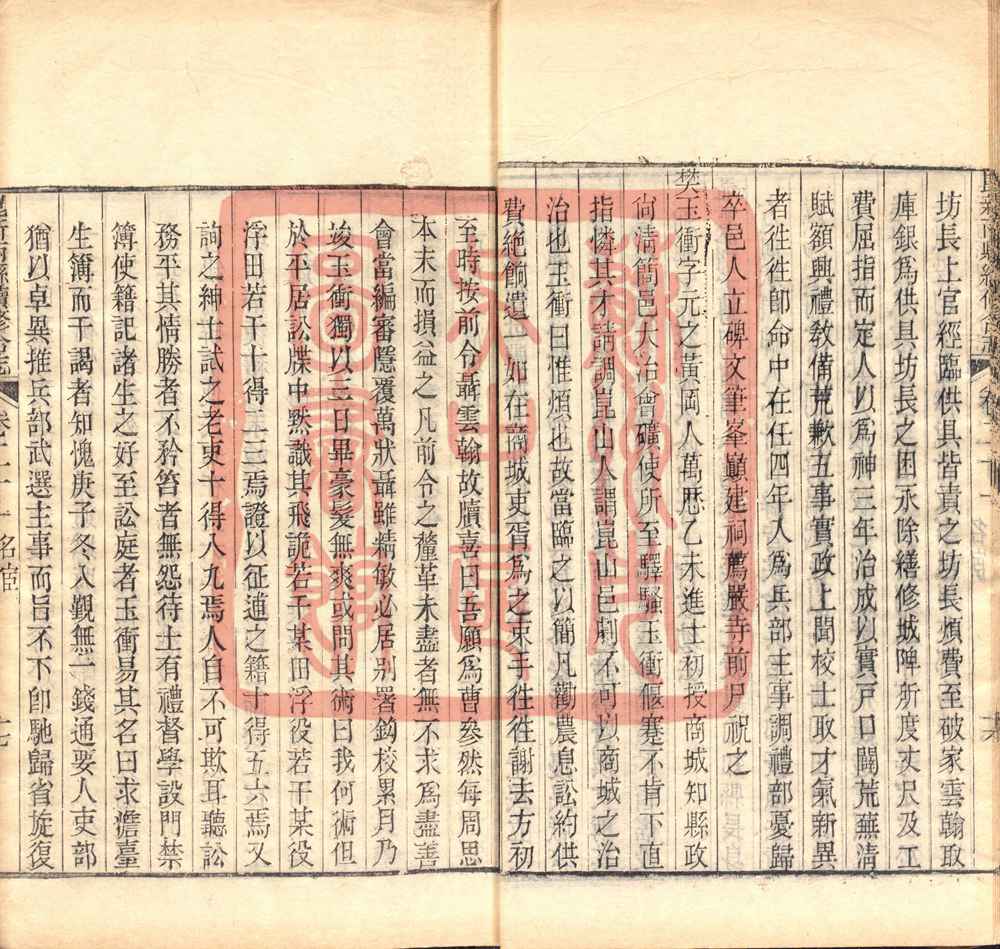 坊長上官經臨供具皆責之坊長煩費至破家雲翰取
庫銀爲供具坊長之困永除繕修城陴所度丈尺及工
費屈指而定人以爲神三年治成以實戸口闢荒蕪清
賦額興禮敎備荒歉五事實政上聞校士取才氣新異
者往往卽命中在任四年入爲兵部主事調禮部憂歸
卒邑人立碑文筆峯巓建祠薦嚴寺前尸祝之
樊玉衝字元之黃岡人萬厯乙未進士初授商城知縣政
尙淸簡邑大治會礦使所至驛騷玉衝偃蹇不肯下直
指憐其才請調崑山人謂崑山邑劇不可以商城之治
治也玉衝曰惟煩也故當臨之以簡凡勸農息訟約供
費絶餉遺一如在商城吏胥爲之束手徃徃謝去方初
至時按前令聶雲翰故牘喜曰吾願爲曹參然每周思
本末而損益之凡前令之釐革未盡者無不求爲盡善
會當編審隱覆萬狀聶雖精敏必居別署鈎校累月乃
竣玉衝獨以三日畢豪髮無爽或問其術曰我何術但
於平居訟牒中黙識其飛詭若干某田浮役若干某役
浮田若干十得二三焉證以征逋之籍十得五六焉又
詢之紳士試之老吏十得八九焉人自不可欺耳聽訟
務平其情勝者不矜笞者無怨待士有禮督學設門禁
簿使籍記諸生之好至訟庭者玉衝易其名曰求澹臺
生簿而干謁者知愧庚子冬入覲無一錢通要人吏部
猶以卓異推兵部武選主事而旨不下卽馳歸省旋復
卷之二十一 名宦
十七